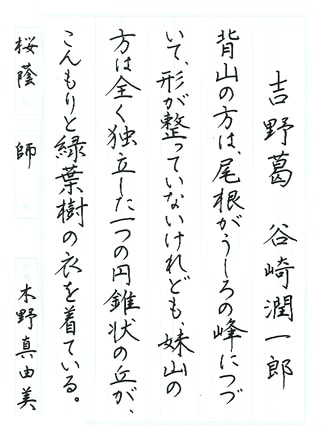 吉野葛 谷崎潤一郎
背山の方は、尾根がうしろの峰につづ
いて、形が整っていないけれども、妹山の
方は全く独立した一つの円錐状の丘が、
こんもりと緑葉樹の衣を着ている。
桜蔭 師 木野真由美